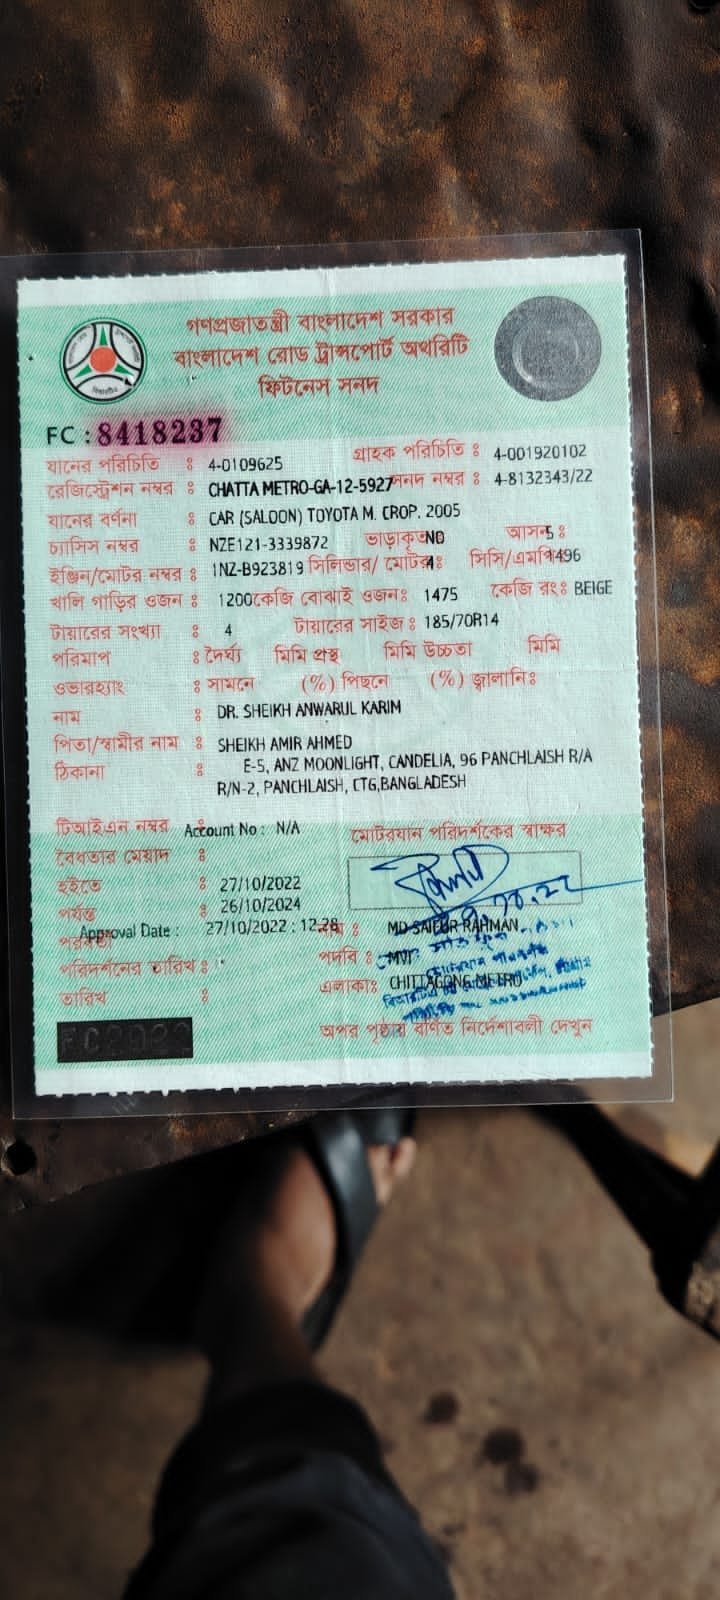 গণপ্রজাতন্ত্রী বাংলাদেশ সরকার
বাংলাদেশ রোড ট্রান্সপোর্ট অথরিটি
ফিটনেস সনদ
FC : 8418237
যানের পরিচিতি : 4-0109625 গ্রাহক পরিচিতি : 4-001920102
রেজিস্ট্রেশন নম্বর : CHATTA METRO-GA-12-5927 সনদ নম্বর : 4-8132343/22
যানের বর্ণনা : CAR (SALOON) TOYOTA M. CROP. 2005
চ্যাসিস নম্বর : NZE121-3339872 ভাড়াকৃত NO আসন : 5
ইঞ্জিন/মোটর নম্বর : 1NZ-B923819 সিলিন্ডার/ মোটর : 4 সিসি/এমপি 1496
খালি গাড়ির ওজন : 1200 কেজি বোঝাই ওজন : 1475 কেজি রং : BEIGE
টায়ারের সংখ্যা : 4 টায়ারের সাইজ : 185/70R14
পরিমাপ : দৈর্ঘ্য মিমি প্রস্থ মিমি উচ্চতা মিমি
ওভারহ্যাং : সামনে (%) পিছনে (%) জ্বালানি :
নাম : DR. SHEIKH ANWARUL KARIM
পিতা/স্বামীর নাম : SHEIKH AMIR AHMED
ঠিকানা : E-5, ANZ MOONLIGHT, CANDELIA, 96 PANCHLAISH R/A
R/N-2, PANCHLAISH, CTG,BANGLADESH
টিআইএন নম্বর : Account No : N/A মোটরযান পরিদর্শকের স্বাক্ষর
বৈধতার মেয়াদ :
হইতে : 27/10/2022
পর্যন্ত : 26/10/2024
Approval Date : 27/10/2022 : 12.28 MD SAIFUR RAHMAN
পরবর্তী
পরিদর্শনের তারিখ : পদবি : MVI
তারিখ : এলাকা : CHITTAGONG METRO
FC2022
অপর পৃষ্ঠায় বর্ণিত নির্দেশাবলী দেখুন